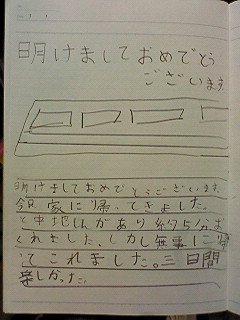 明けましておめでとう
ございます
明けましておめでとうございます
今日家に帰ってきました。
と中地しんがあり約5分お
くれました。しかし無事に帰
てこれました。三日間
楽しかった。